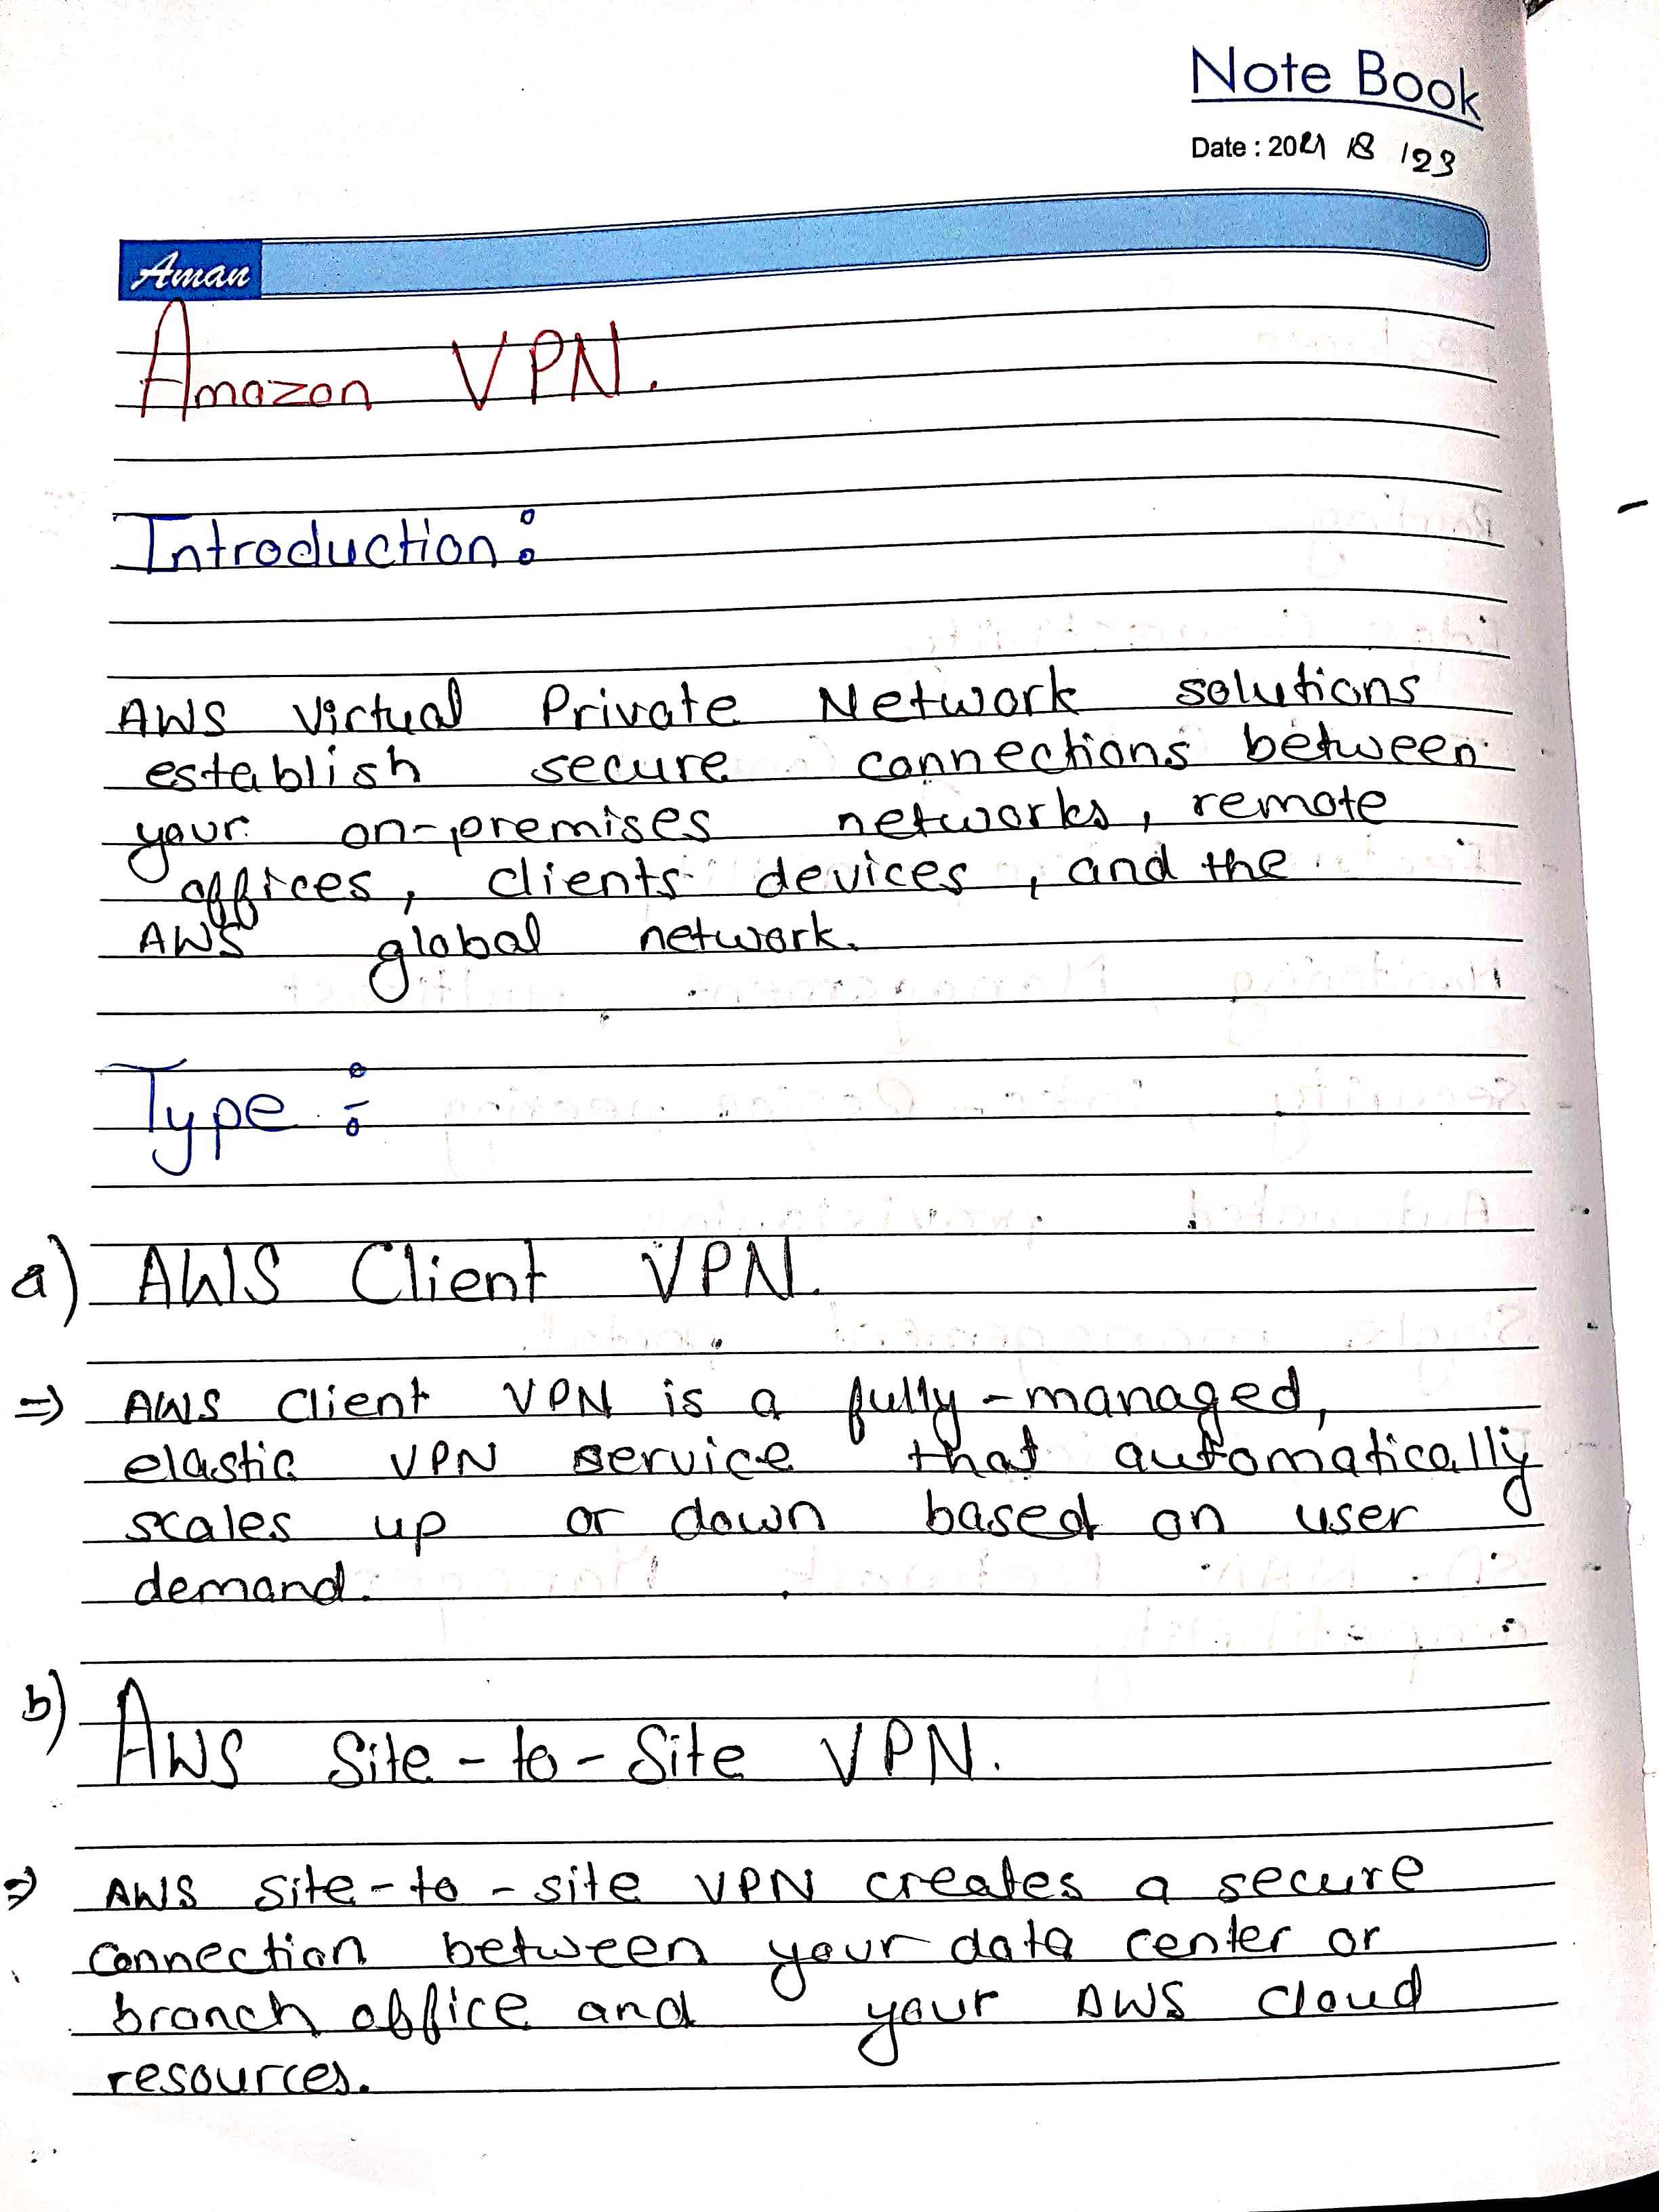 Note Book
Date : 2021 /8 /23
Aman
Amazon VPN.
Introduction:
AWS Virtual Private Network solutions
establish secure connections between
your on-premises networks, remote
offices, clients devices, and the
AWS global network.
Type :-
a) AWS Client VPN.
=> AWS Client VPN is a fully-managed,
elastic VPN service that automatically
scales up or down based on user
demand.
b) AWS Site-to-Site VPN.
=> AWS site-to-site VPN creates a secure
connection between your data center or
branch office and your AWS cloud
resources.